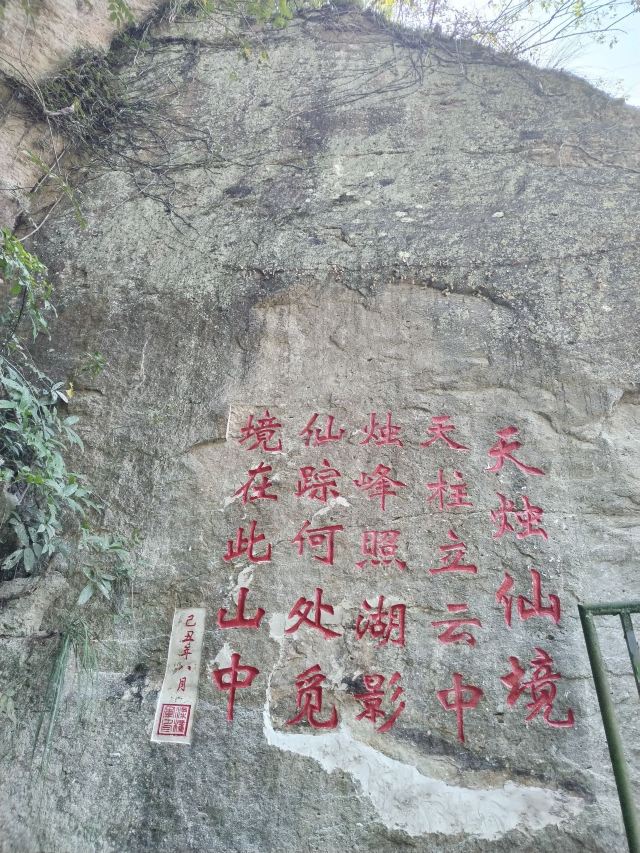 天烛仙境
天柱立云中
烛峰照湖影
仙踪何处觅
境在此山中
己丑年八月